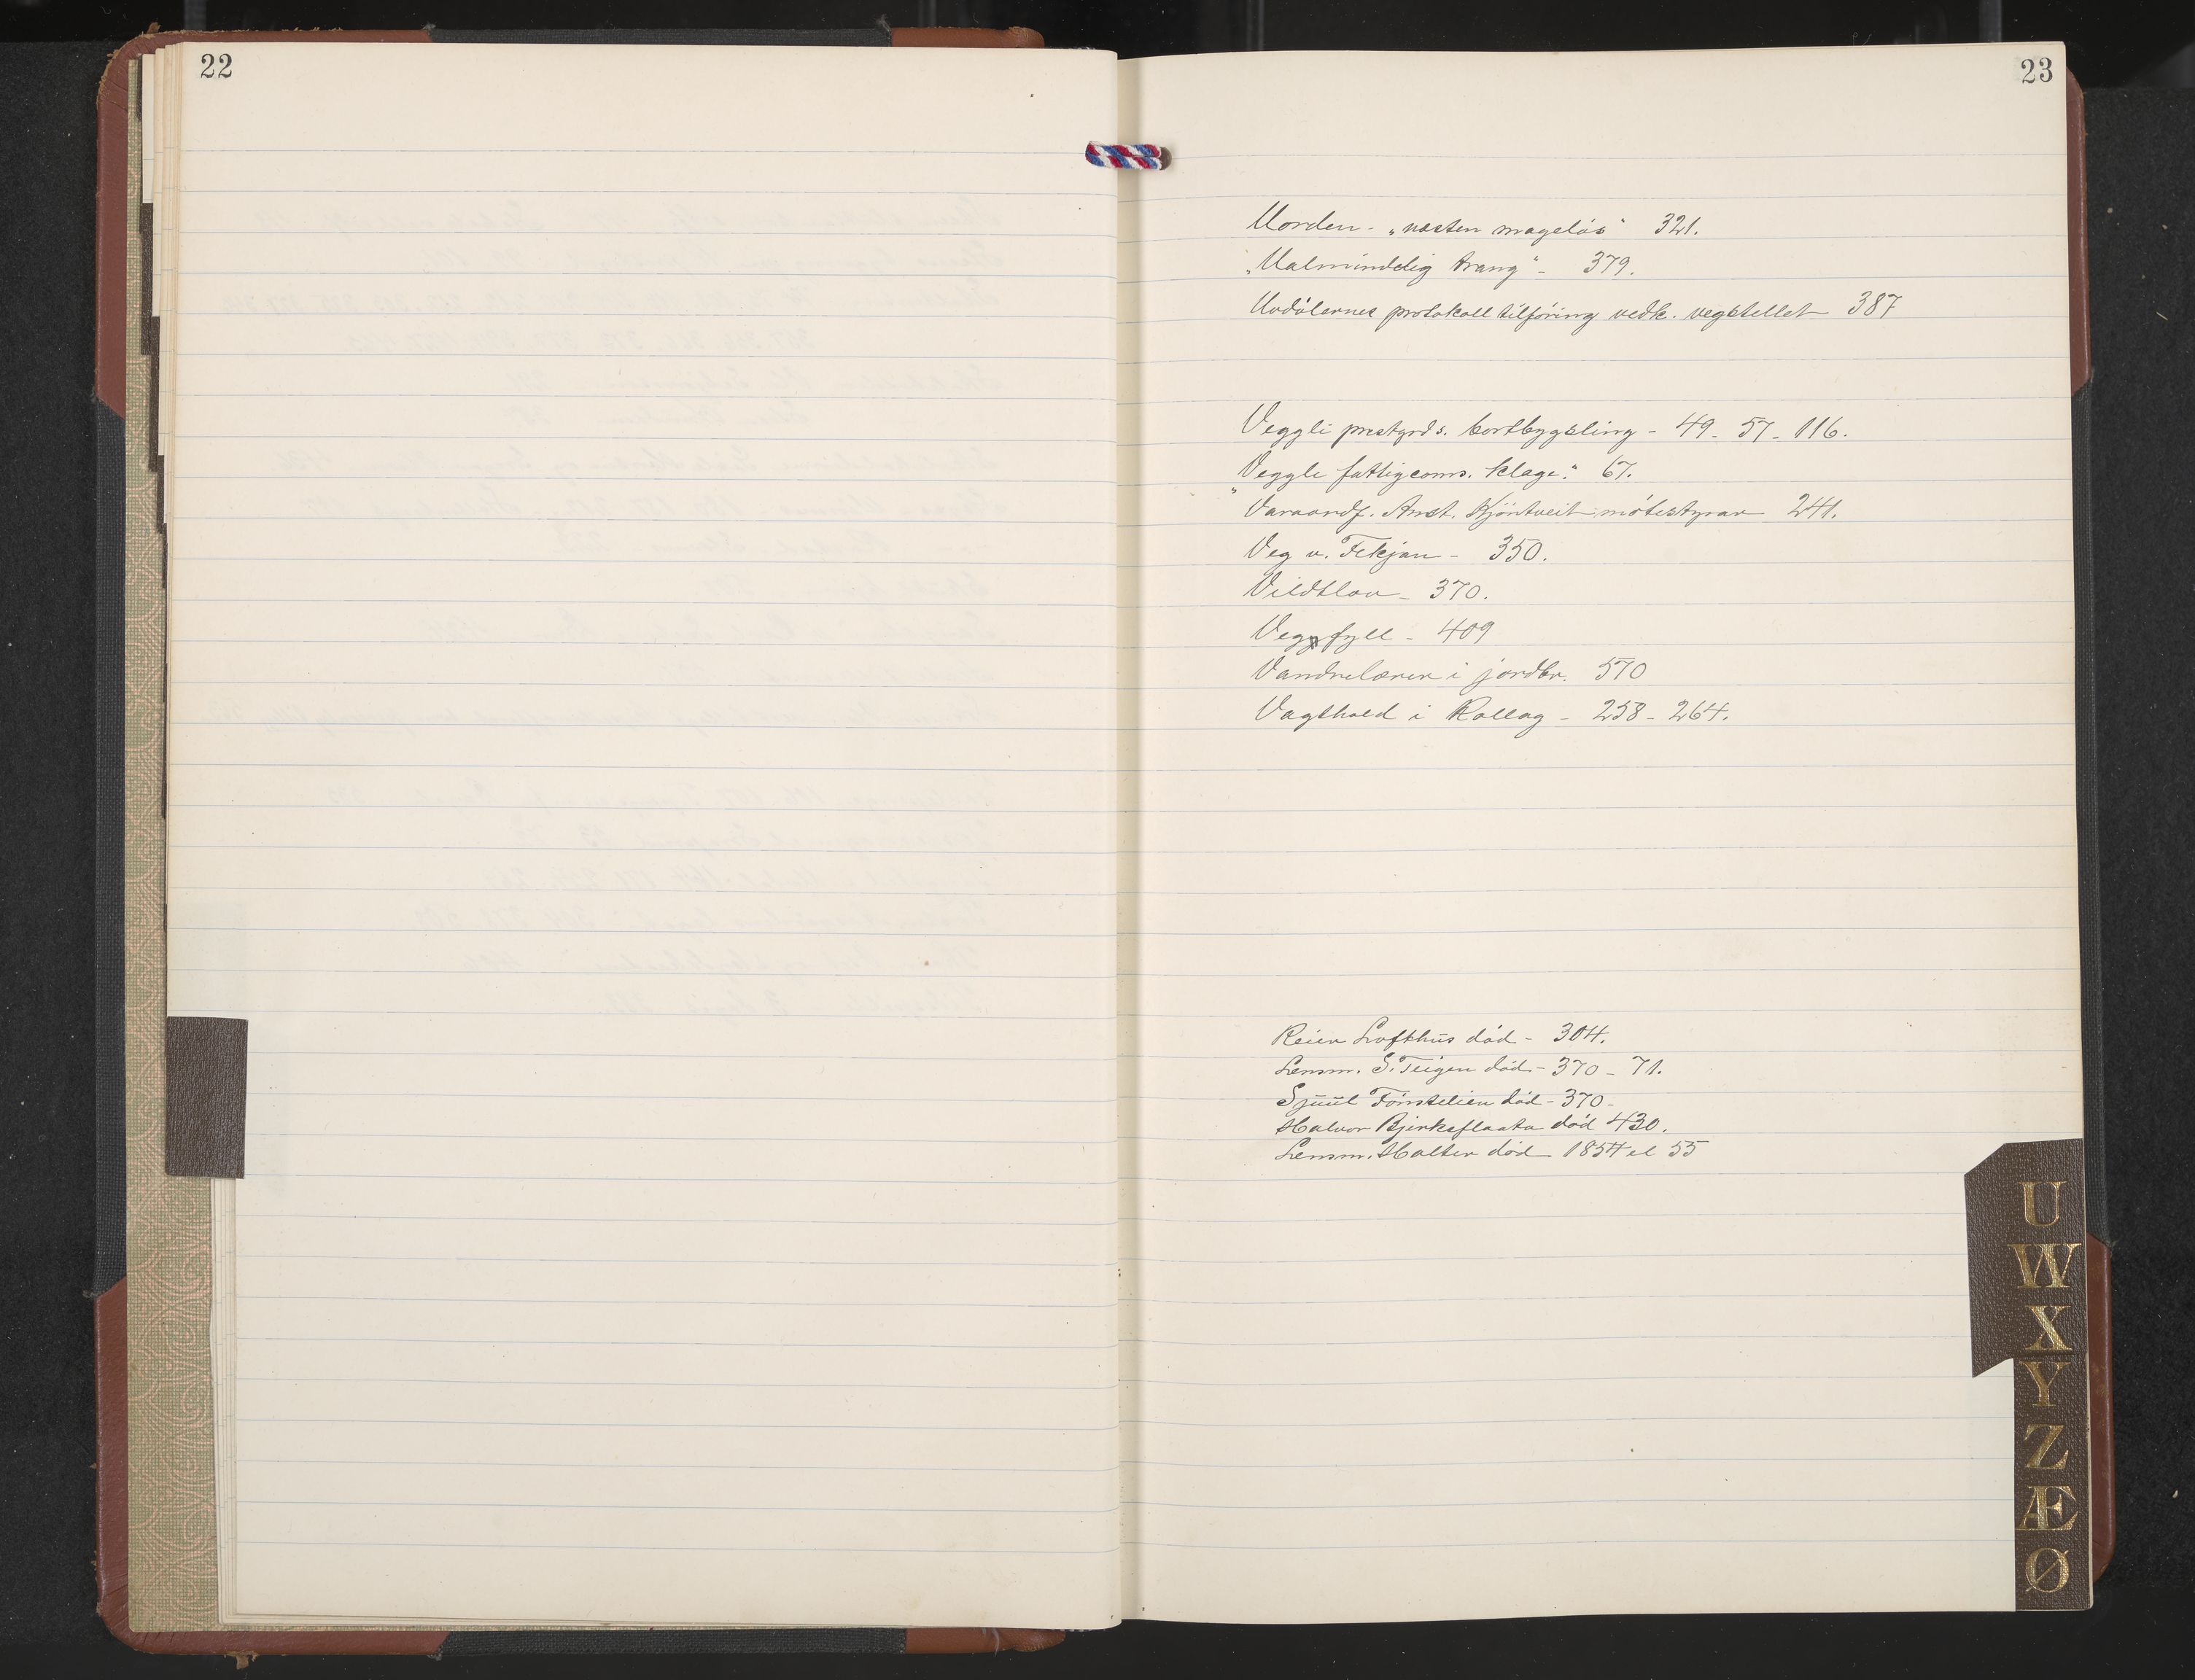 22
23
Uorden - „næsten mageløs“ 321.
„Ualmindelig trang“ - 379.
Uvdølernes protokolltilføring vedk. vegstellet 387
Veggli prestgrds. bortbygsling - 49 - 57 - 116.
„Veggli fattigcoms. klage.“ 67.
Varaordf. Anst. Kjøntveit møtestyrar 241.
Veg v. Fekjan - 350.
Vildtlov - 370.
Vegfyll - 409
Vandrelærer i jordbr. 570
Vagthold i Rollag - 258 - 264.
Reier Lofthus død - 304.
Lensm. S. Teigen død - 370 - 71.
Sjuul Fønstelien død - 370 -
Halvor Bjerkeflaata død 430.
Lensm. Halter død 1854 el 55
U
W
X
Y
Z
Æ
Ø